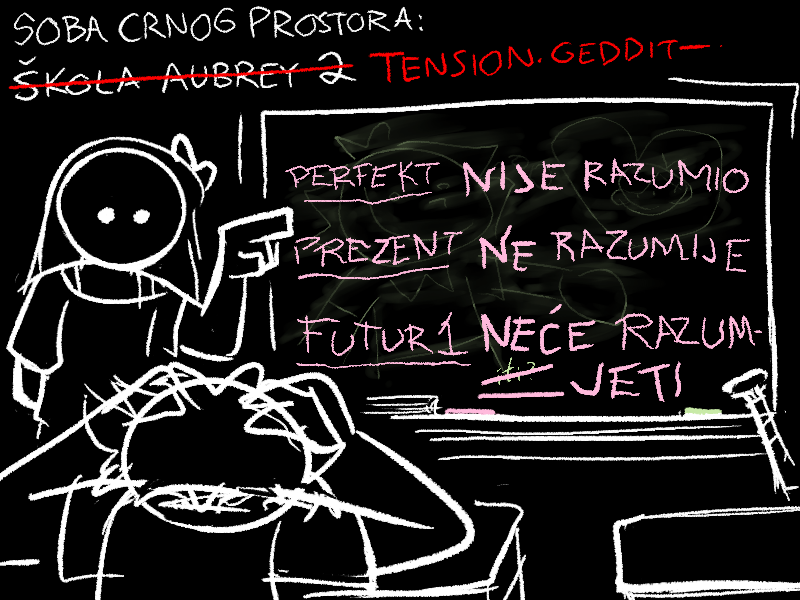 SOBA CRNOG PROSTORA:
ŠKOLA AUBREY 2 TENSION. GEDDIT—.
PERFEKT NIJE RAZUMIO
PREZENT NE RAZUMIJE
FUTUR 1 NEĆE RAZUM-
JETI